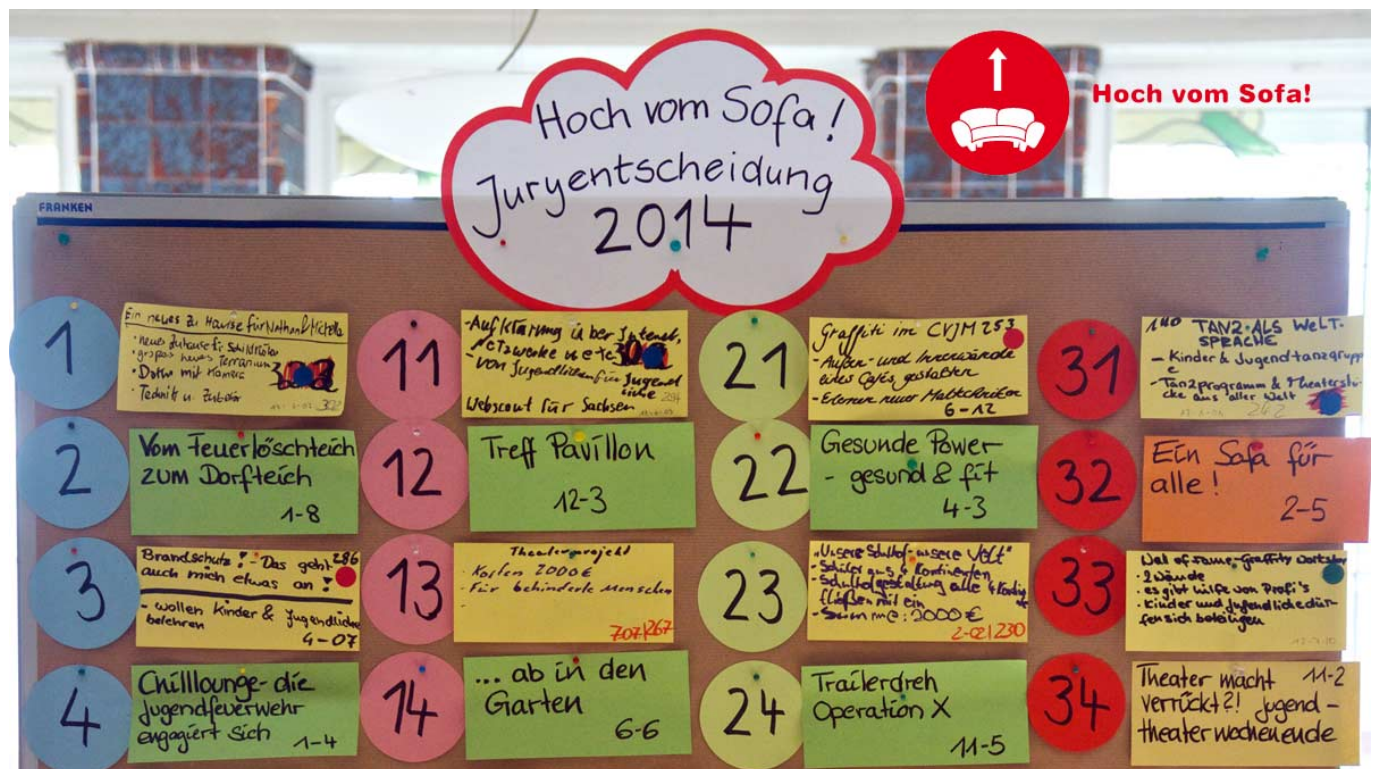 Hoch vom Sofa!
Juryentscheidung
2014
Hoch vom Sofa!
FRANKEN
1
Ein neues zu Hause für
- neues zuhause für Schildkröten
großes neues Terrarium
Technik u. Zubehör
2
Vom Feuerlöschteich
zum Dorfteich
1-8
3
Brandschutz! - Das geht 286
auch mich etwas an!
- wollen Kinder & Jugendliche
belehren
4-07
4
Chilllounge - die
Jugendfeuerwehr
engagiert sich
1-4
11
- Aufklärung über Internet,
Netzwerke u etc
- von Jugendlichen für Jugend
liche
Webscout für Sachsen
12
Treff Pavillon
12-3
13
Theaterprojekt
- Kosten 2000€
- Für behinderte Menschen
-
707/267
14
... ab in den
Garten
6-6
21
Graffiti im CVJM 253
- Außen- und Innenwände
eines Cafés gestalten
- Erlernen neuer Maltechniken
6-12
22
Gesunde Power
- gesund & fit
4-3
23
"Unsere Schulhof-unsere Welt"
- Schüler aus 4 Kontinenten
- Schulhofgestaltung alle 4 Kontinente
fließen mit ein
- Summe: 2000€
2-02/230
24
Trailerdreh
Operation X
11-5
31
140 TANZ ALS WELT-
SPRACHE
- Kinder & Jugendtanzgrupp
e
- Tanzprogramm & Theaterstü-
cke aus aller Welt
242
32
Ein Sofa für
alle!
2-5
33
Wal of fame-Graffity Workshop
- 2 Wände
- es gibt hilfe von Profi's
- Kinder und Jugendliche dür-
fen sich beteiligen
34
Theater macht 11-2
verrückt?! Jugend-
theaterwochenende